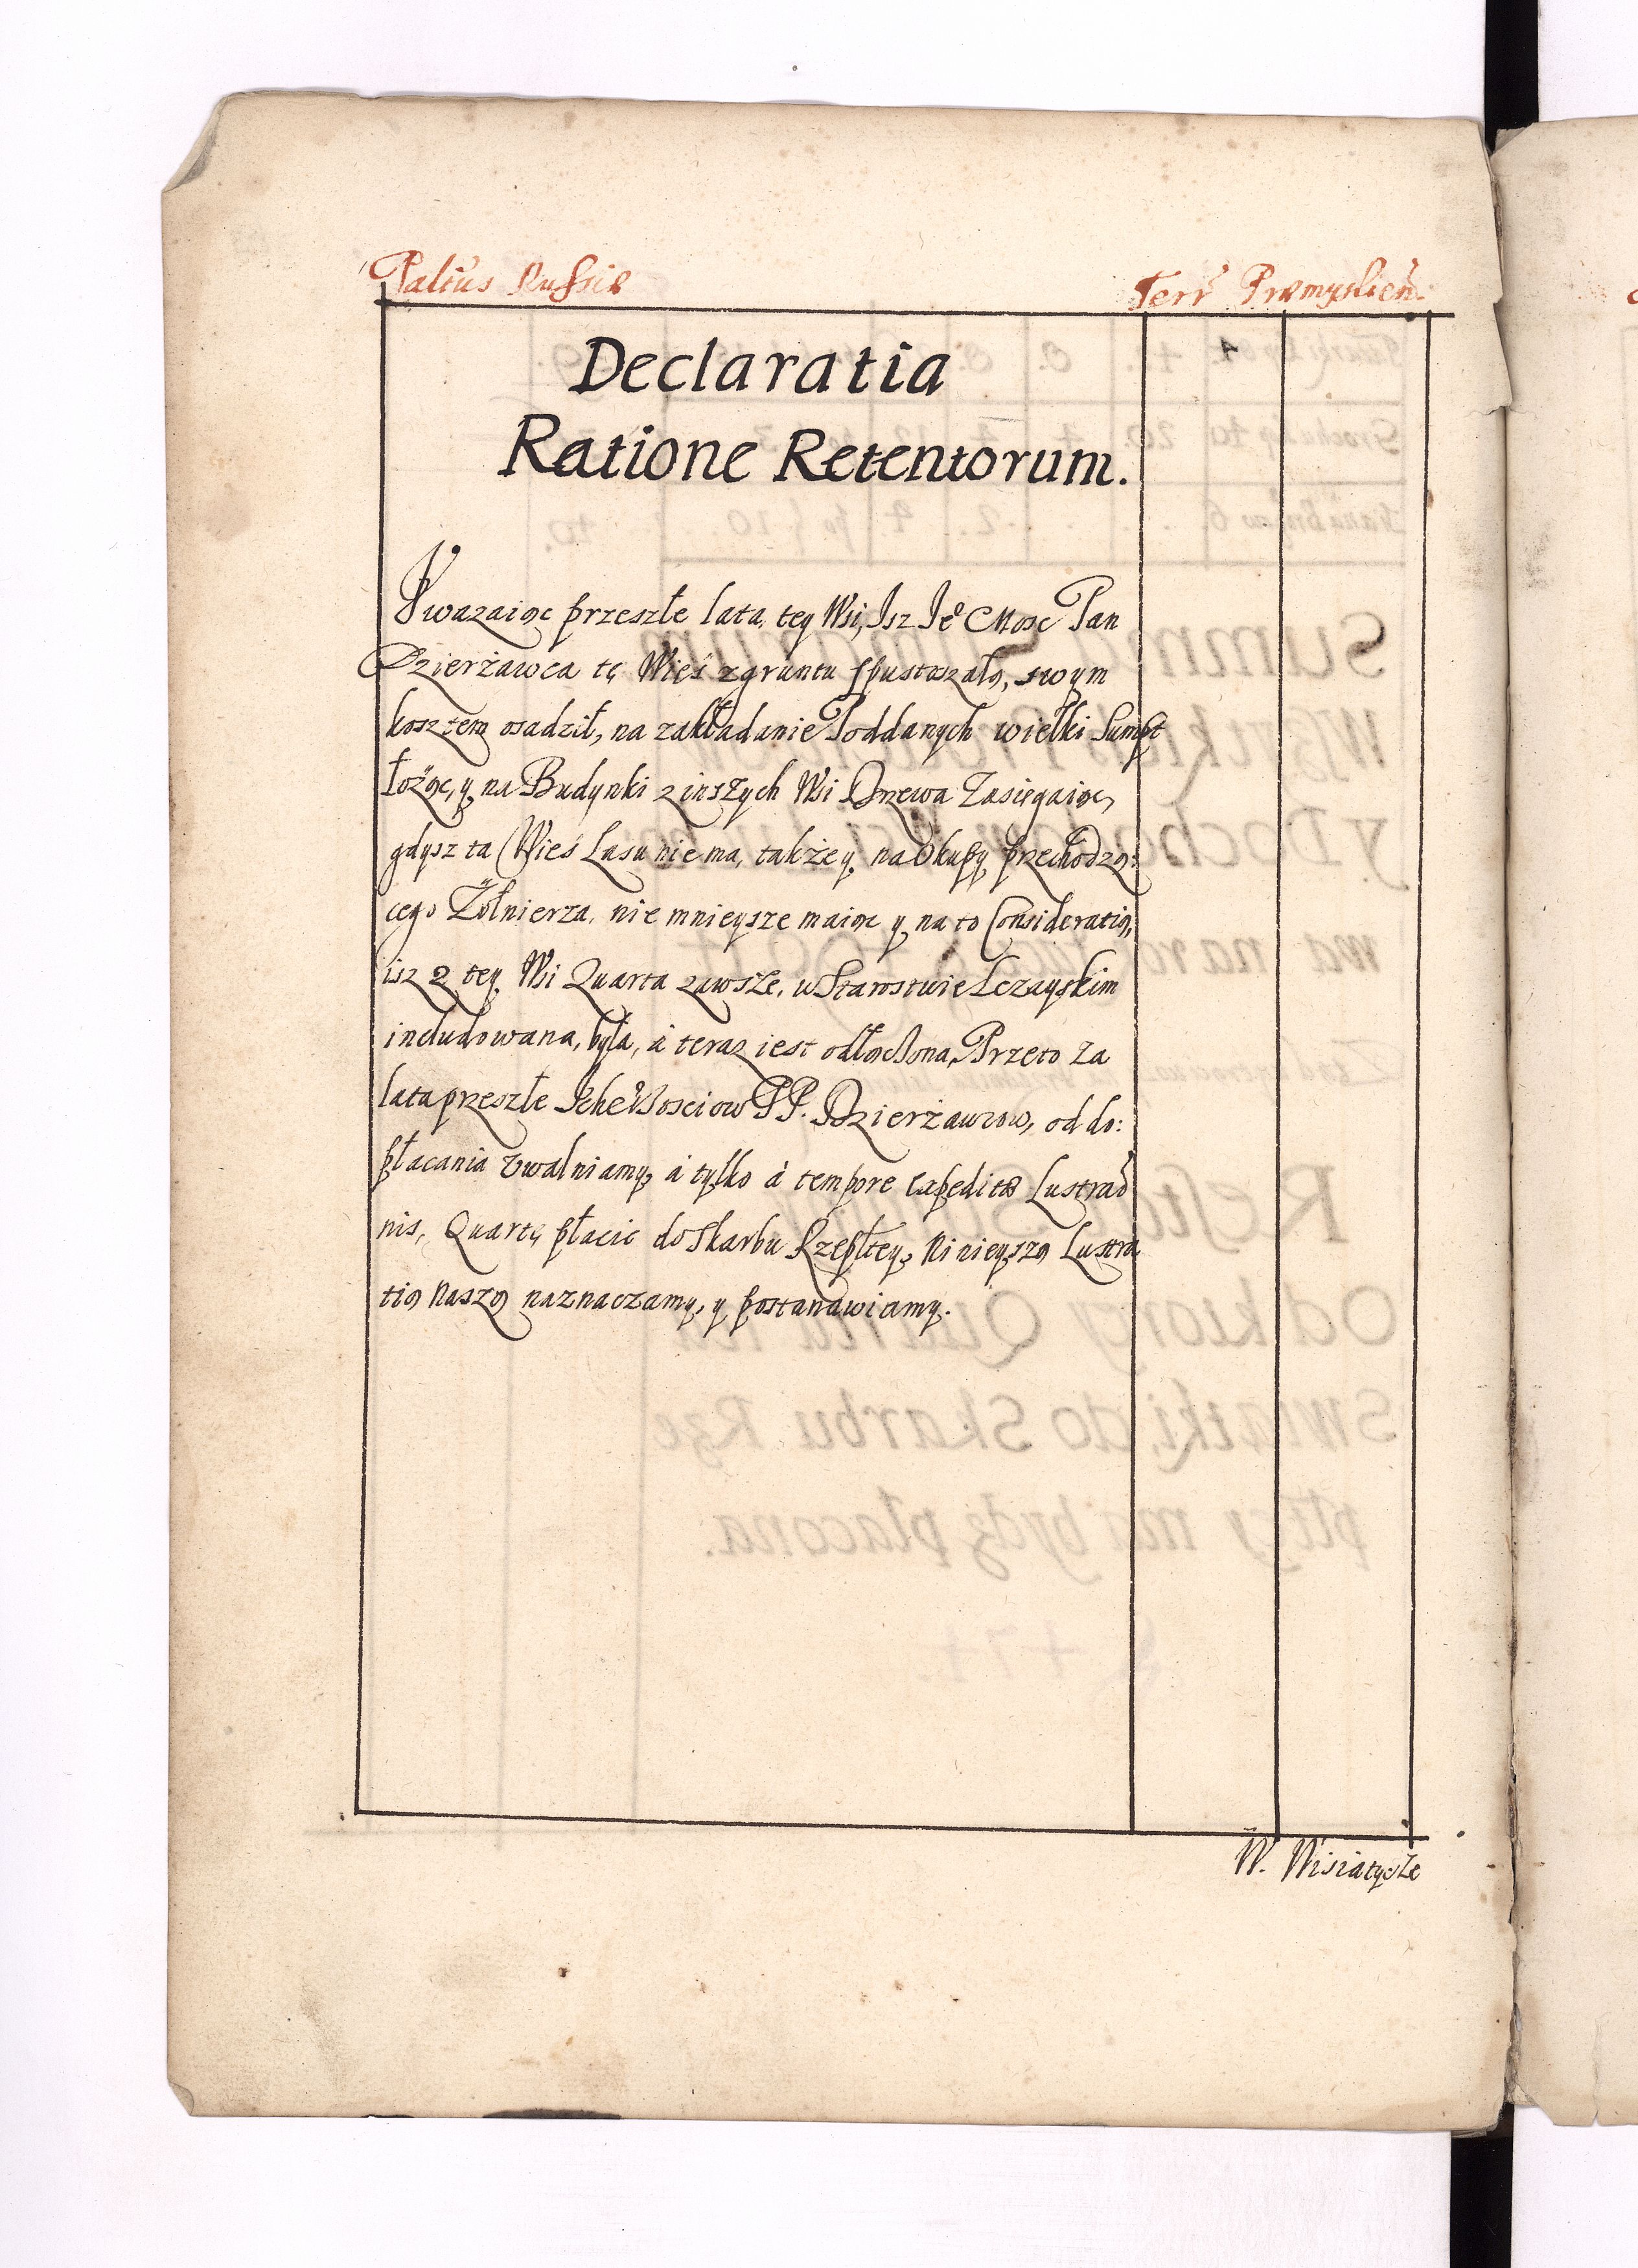 Palt͠us Russiæ
Terr͠ Præmyslien͠.
Declaratia
Ratione Retentorum.
Vwazaiąc przeszłe lata, tey Wsi, Isz Ie⁰ Mosc Pan
Dzierżawca tę Wieś z gruntu spustoszałą, swym
kosztem osadził, na zakładanie Poddanych wielki Sumpt
łożąc, y na Budynki z inszych Wsi Drzewa Zasięgaiąc,
gdysz ta Wieś Lasu nie ma, także y na Okupy przechodzą:
cego Żołnierza, nie mnieysze maiąc y na to Consideratią,
isz z tey Wsi Quarta zawsze, w Starostwie Leżayskim
includowana, była, á teraz iest odłączona, Przeto za
lata przeszłe Iche Mosciow PP. Dzierżawcow, od do:
płacania Vwalniamy, á tylko á tempore expeditæ Lustrao͠
nis, Quartę płacic do Skarbu Rzepltey, Ninieyszą Lustra
tią Naszą naznaczamy, y postanawiamy.
W. Wisiatycze